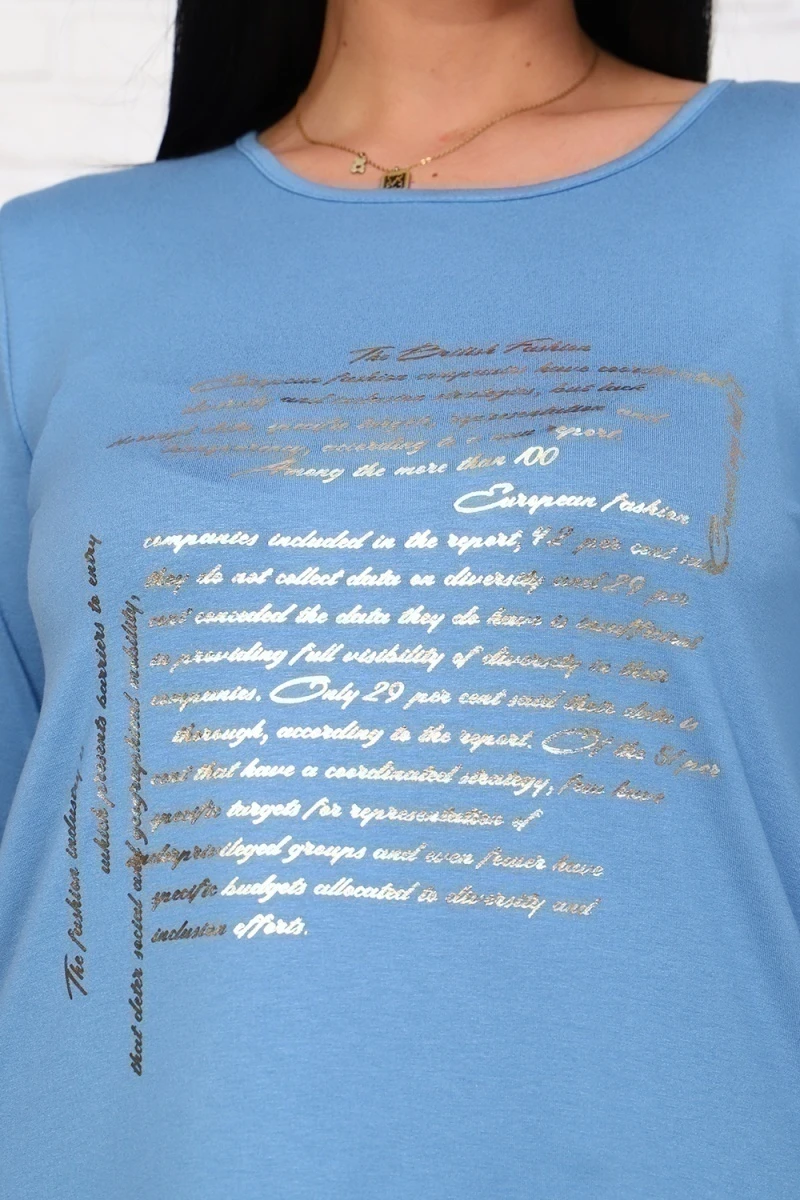 The British Fashion
European fashion companies have coordinated
diversity and inclusion strategies, but lack
through data, concrete targets, representation and
transparency, according to a new report.
Among the more than 100
European fashion
companies included in the report, 42 per cent said
they do not collect data on diversity and 29 per
cent conceded the data they do have is insufficient
in providing full visibility of diversity in their
companies. Only 29 per cent said their data is
thorough, according to the report. Of the 81 per
cent that have a coordinated strategy, few have
specific targets for representation of
underprivileged groups and even fewer have
specific budgets allocated to diversity and
inclusion efforts.
The fashion industry,
which presents barriers to entry
that deter social and geographical mobility,